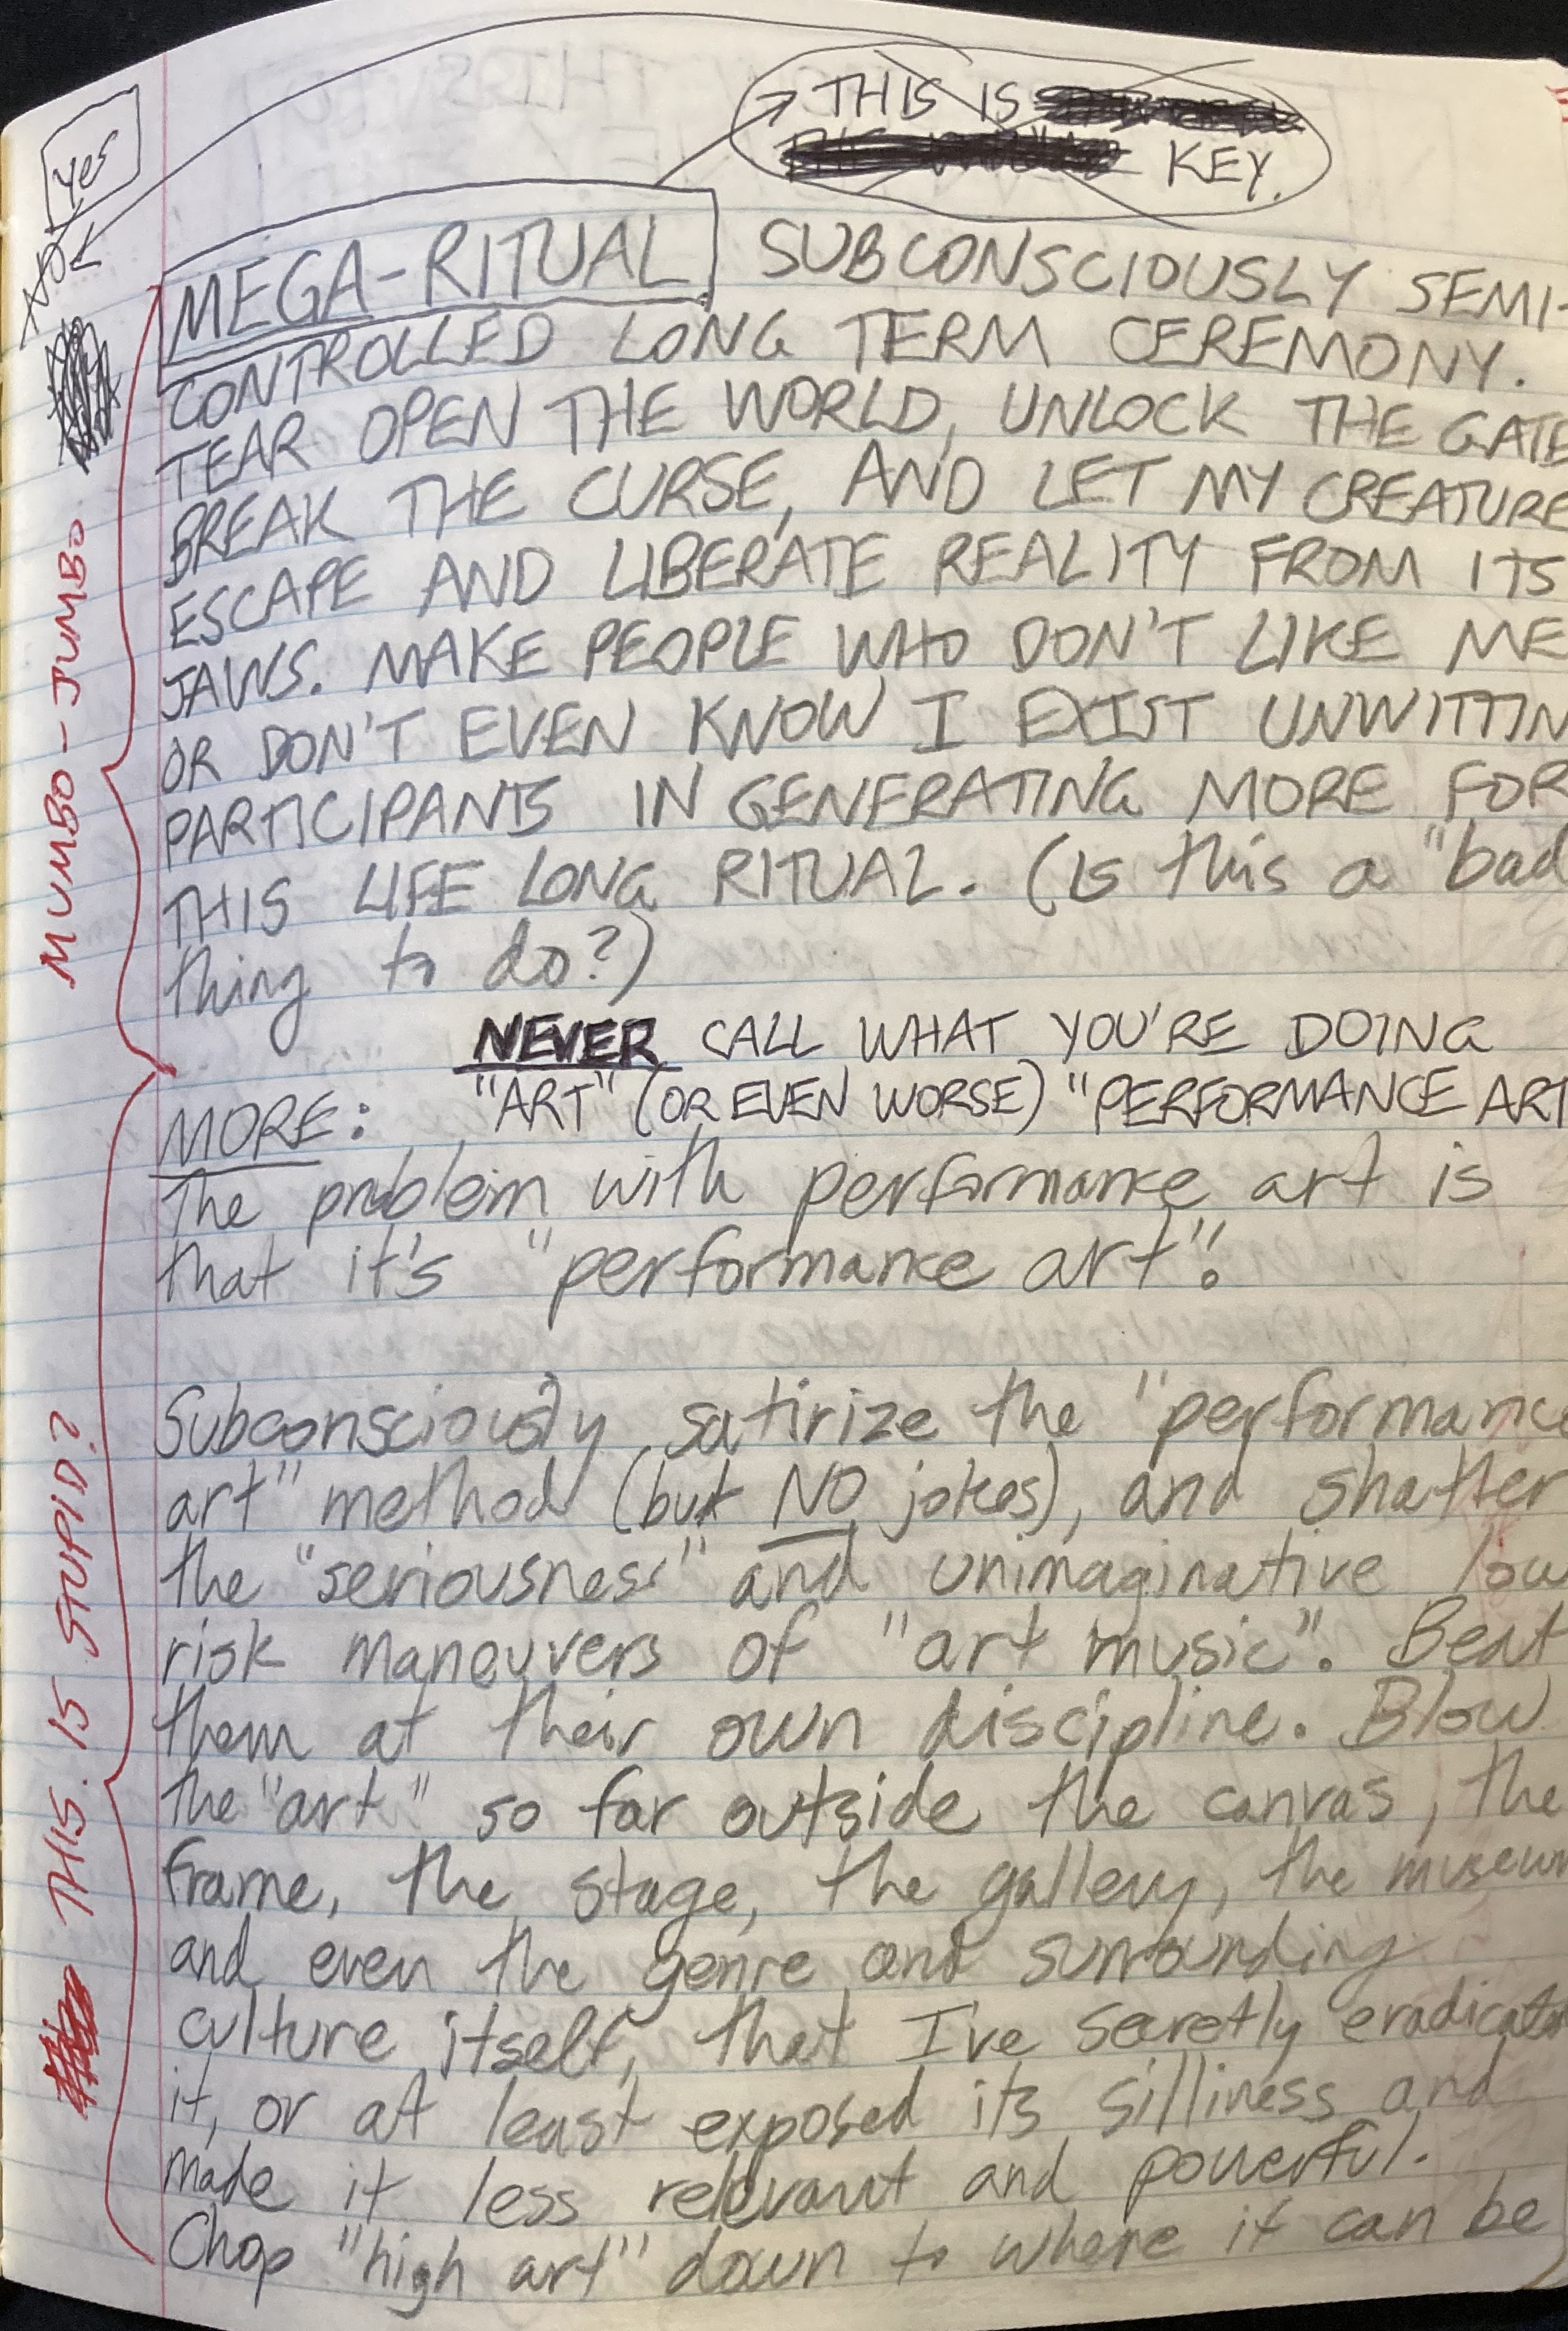 Yes
NO
THIS IS
KEY.
MEGA-RITUAL SUBCONSCIOUSLY SEMI-
CONTROLLED LONG TERM CEREMONY.
TEAR OPEN THE WORLD, UNLOCK THE GATE
BREAK THE CURSE, AND LET MY CREATURE
ESCAPE AND LIBERATE REALITY FROM ITS
JAWS. MAKE PEOPLE WHO DON'T LIKE ME
OR DON'T EVEN KNOW I EXIST UNWITTIN
PARTICIPANTS IN GENERATING MORE FOR
THIS LIFE LONG RITUAL. (Is this a "bad
thing to do?)
MUMBO-JUMBO
NEVER CALL WHAT YOU'RE DOING
"ART" (OR EVEN WORSE) "PERFORMANCE ART
MORE:
The problem with performance art is
that it's "performance art".
Subconsciously satirize the "performance
art" method (but NO jokes), and shatter
the "seriousness" and unimaginative low
risk maneuvers of "art music". Beat
them at their own discipline. Blow
the "art" so far outside the canvas, the
frame, the stage, the gallery, the museum
and even the genre and surrounding
culture itself, that I've secretly eradicated
it, or at least exposed its silliness and
made it less relevant and powerful.
Chop "high art" down to where it can be
THIS IS STUPID?